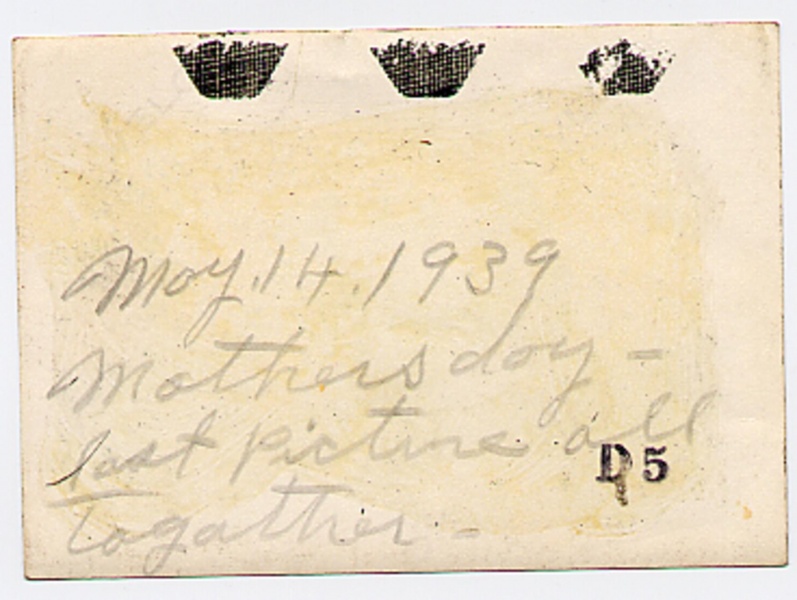 May. 14. 1939
Mothers day -
last picture all
Togather -
D5